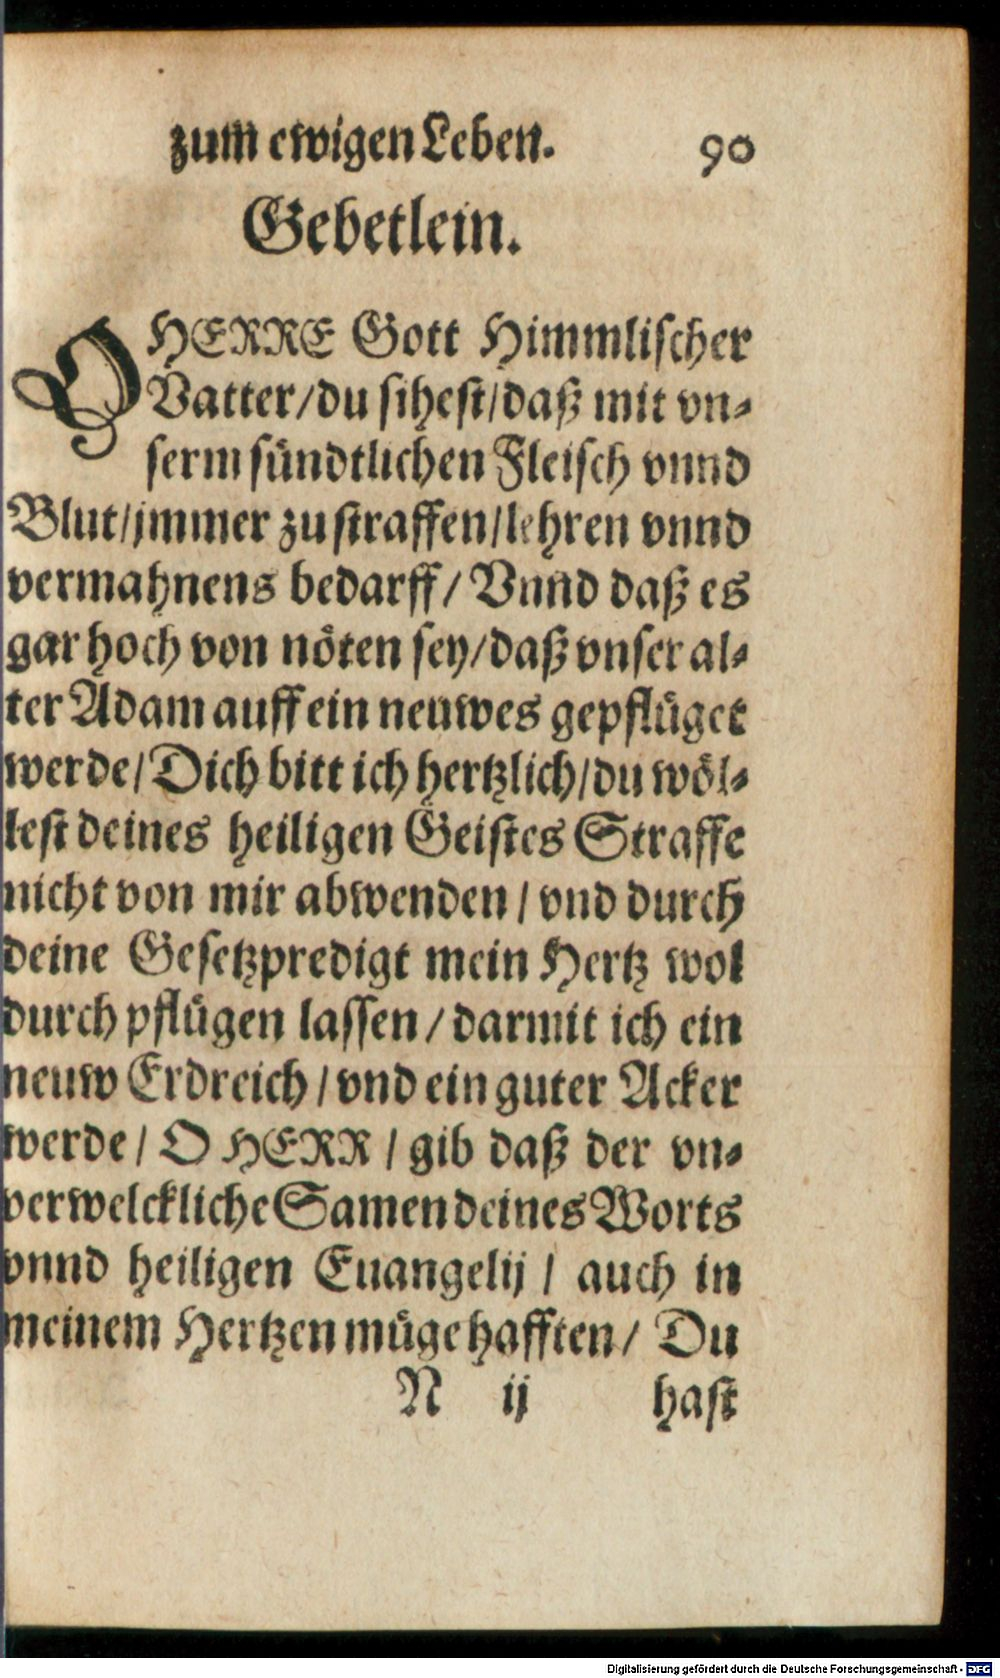 zum ewigen Leben. 90
Gebetlein.
O HERRE Gott Himmlischer
Vatter/du sihest/daß mit vn-
serm sündtlichen Fleisch vnnd
Blut/jmmer zu straffen/lehren vnnd
vermahnens bedarff/ Vnnd daß es
gar hoch von nöten sey/daß vnser al-
ter Adam auff ein neuwes gepflüget
werde/Dich bitt ich hertzlich/du wöl-
lest deines heiligen Geistes Straffe
nicht von mir abwenden/ vnd durch
deine Gesetzpredigt mein Hertz wol
durch pflügen lassen/ darmit ich ein
neuw Erdreich/ vnd ein guter Acker
werde/ O HERR/ gib daß der vn-
verwelckliche Samen deines Worts
vnnd heiligen Euangelij/ auch in
meinem Hertzen müge hafften/ Du
N ij hast
Digitalisierung gefördert durch die Deutsche Forschungsgemeinschaft - DFG